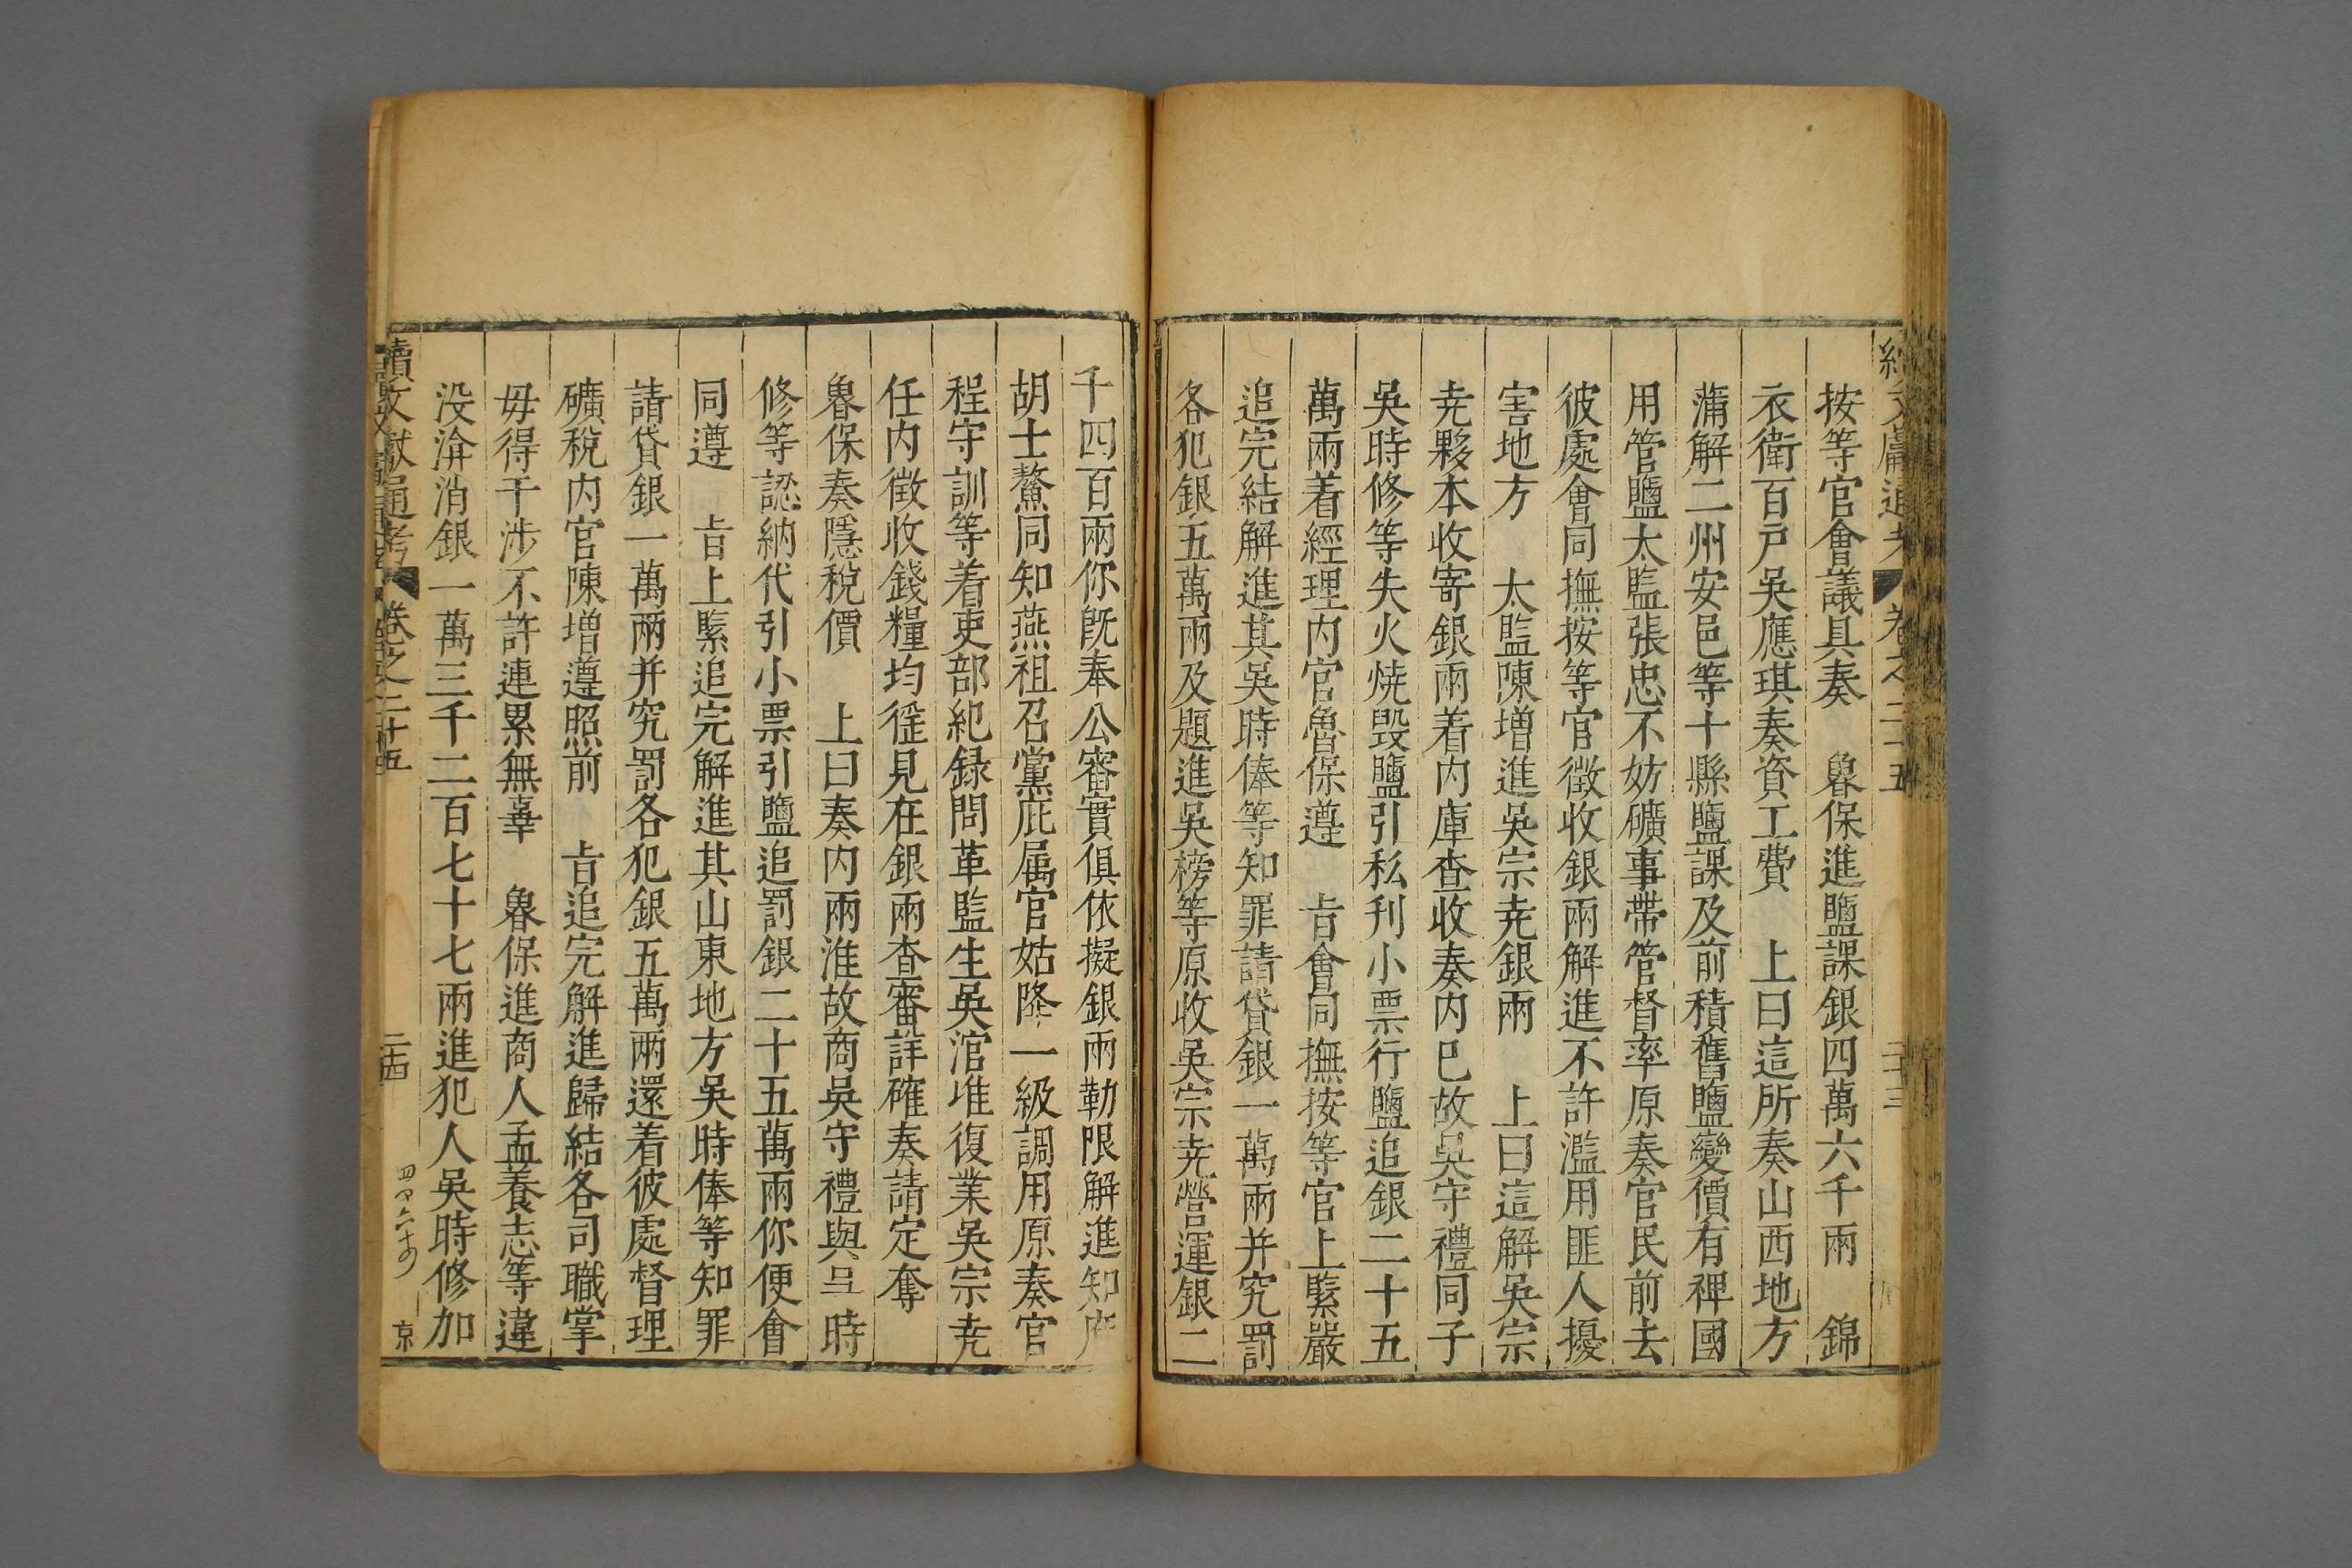 按等官會議具奏　魯保進鹽課銀四萬六千兩　錦
衣衛百戸吳應琪奏資工費　上曰這所奏山西地方
蒲解二州安邑等十縣鹽課及前積舊鹽變價有裨國
用管鹽太監張忠不妨礦事帶管督率原奏官民前去
彼處會同撫按等官徵收銀兩解進不許濫用匪人擾
害地方　太監陳增進吳宗尭銀兩　上曰這解吳宗
尭夥本收寄銀兩着内庫查收奏内已故吳守禮同子
吳時修等失火燒毀鹽引私刋小票行鹽追銀二十五
萬兩着經理内官魯保遵　旨會同撫按等官上緊嚴
追完結解進其吳時俸等知罪請貸銀一萬兩并究罰
各犯銀五萬兩及題進吳榜等原收吳宗尭營運銀二
千四百兩你旣奉公審實俱依擬銀兩勒限解進知府
胡士鰲同知燕祖召黨庇屬官姑降一級調用原奏官
程守訓等着吏部紀録問革監生吳涫准復業吳宗尭
任内徵收錢糧均徭見在銀兩查審詳確奏請定奪
魯保奏隱稅價　上曰奏内兩淮故商吳守禮與時
修等認納代引小票引鹽追罰銀二十五萬兩你便會
同遵　旨上緊追完解進其山東地方吳時俸等知罪
請貸銀一萬兩并究罰各犯銀五萬兩還着彼處督理
礦稅内官陳增遵照前　旨追完解進歸結各司職掌
毋得干涉不許連累無辜　魯保進商人孟養志等違
没渰消銀一萬三千二百七十七兩進犯人吳時修加
續文獻通考　卷之二十五　二十四　京